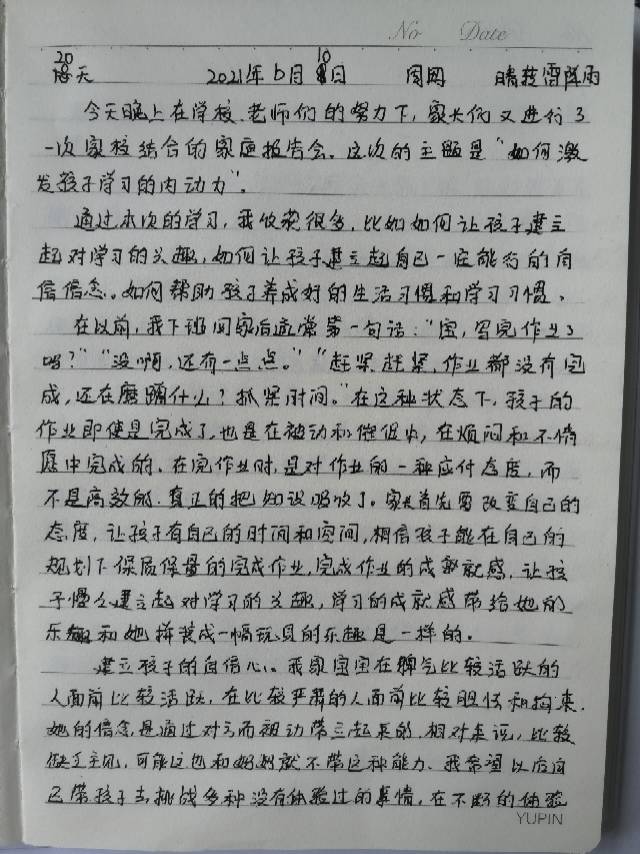 No Date
20
10
第天 2021年6月日 周四 晴转雷阵雨
今天晚上在学校老师们的努力下,家长们又进行了
一次家校结合的家庭报告会。这次的主题是“如何激
发孩子学习的内动力”。
通过本次的学习,我收获很多,比如如何让孩子建立
起对学习的兴趣,如何让孩子建立起自己一定能行的自
信信念。如何帮助孩子养成好的生活习惯和学习习惯。
在以前,我下班回家后通常第一句话:“宝,写完作业了
吗?”“没啊,还有一点点。”“赶紧赶紧,作业都没有完
成,还在磨蹭什么?抓紧时间。”在这种状态下,孩子的
作业即使是完成了,也是在被动和催促中,在烦闷和不情
愿中完成的。在完作业时,是对作业的一种应付态度,而
不是高效的.真正的把知识吸收了。家长首先要改变自己的
态度,让孩子有自己的时间和空间,相信孩子能在自己的
规划下保质保量的完成作业,完成作业的成就感,让孩
子慢慢建立起对学习的兴趣,学习的成就感带给她的
乐趣和她拼装成一幅玩具的乐趣是一样的。
建立孩子的自信心。我家宝宝在脾气比较活跃的
人面前比较活跃,在比较严肃的人面前比较胆怯和拘束.
她的信念是通过对方而被动带立起来的.相对来说,比较
缺乏主见,可能这也和妈妈就不带这种能力、我希望以后自
己带孩子去挑战多种没有体验过的事情,在不断的体验
YUPIN